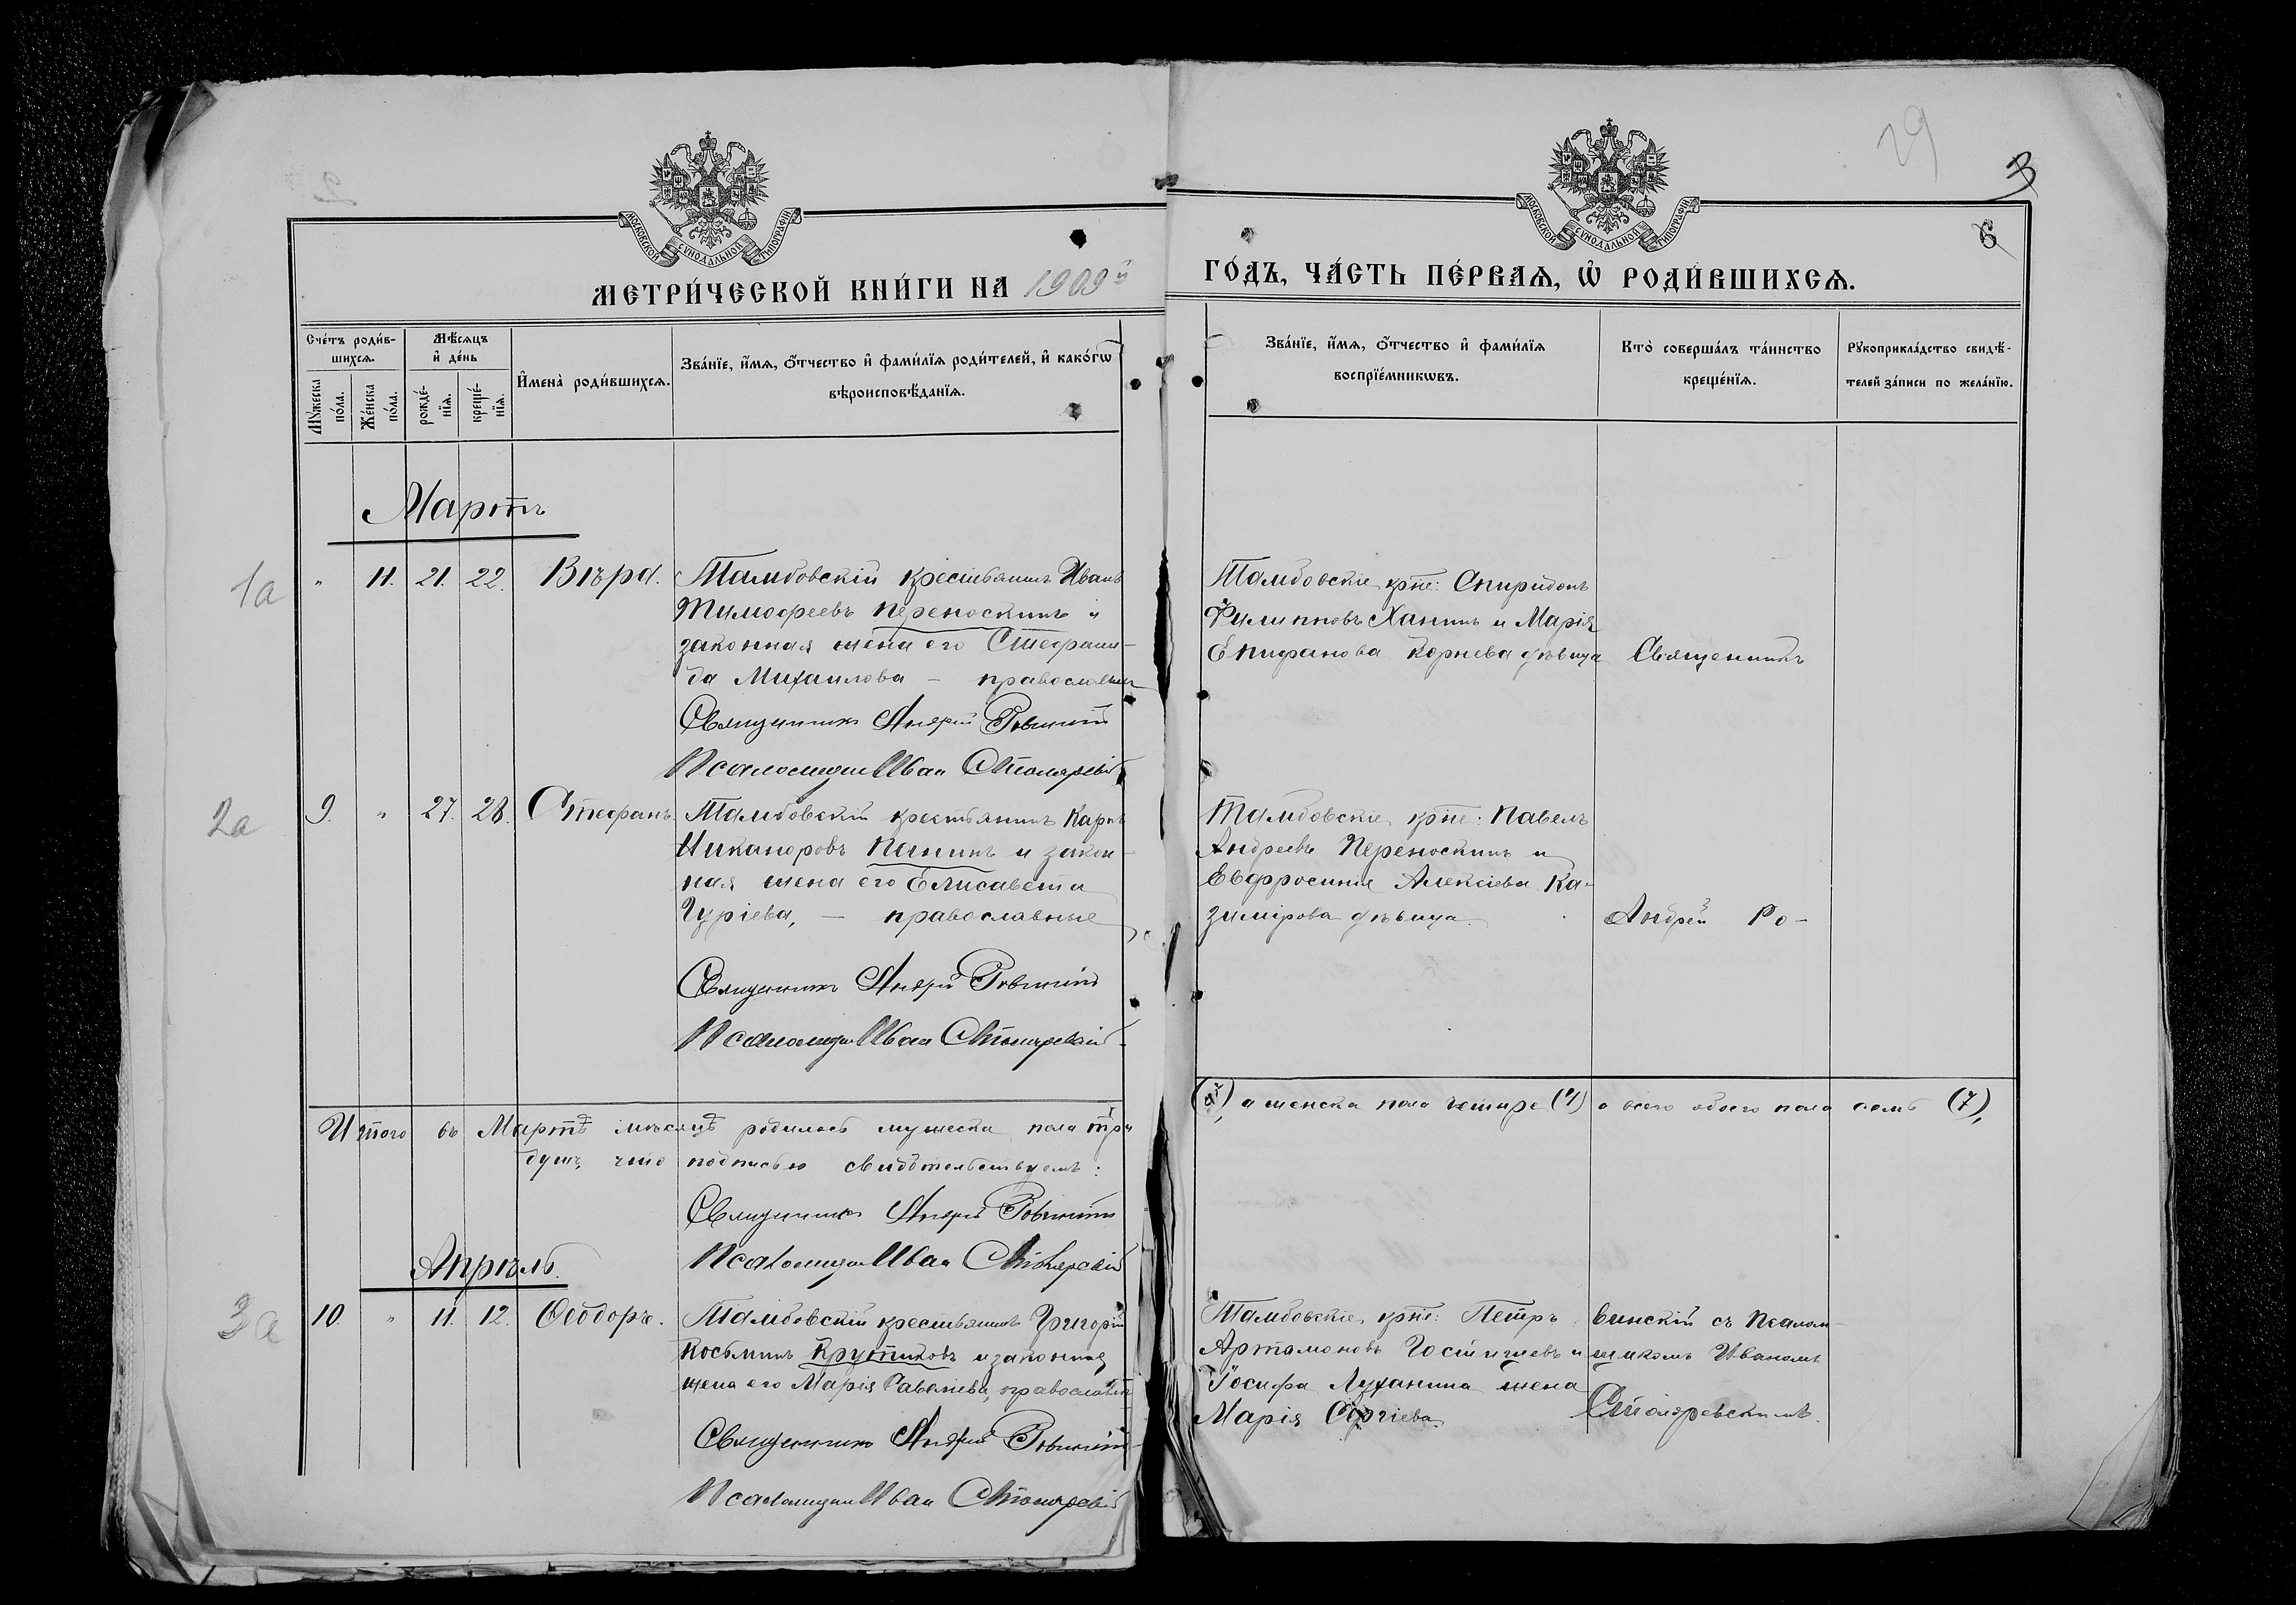 29
3
6
МОСКОВСКОЙ СѴНОДАЛЬНОЙ ТИПОГРАФІИ
МОСКОВСКОЙ СѴНОДАЛЬНОЙ ТИПОГРАФІИ
МЕТРИ́ЧЕСКОЙ КНИ́ГИ НА 1909й
ГО́ДЪ, ЧА́СТЬ ПЕ́РВАЯ, Ѡ҆ РОДИ́ВШИХСЯ.
Сче́тъ роди́в-
шихся.
Мꙋ́жеска
по́ла.
Же́нска
по́ла.
Мѣ́сяцъ
и҆ де́нь
рожде́-
нїя.
креще́-
нїя.
И҆мена̀ роди́вшихся.
Зва́нїе, и҆́мя, ѻ҆́тчество и҆ фами́лїя роди́телей, и҆ како́гѡ
вѣроисповѣ́данїя.
Зва́нїе, и҆́мя, ѻ҆́тчество и҆ фами́лїя
воспрїе́мникѡвъ.
Кто̀ соверша́лъ та́инство
креще́нїя.
Рꙋкоприкла́дство свидѣ́-
телей за́писи по жела́нїю.
Мартъ
1а
" 11. 21. 22. Вѣра.
Тамбовскій крестьянинъ Иванъ
Тимофеевъ Переноскинъ и
законная жена его Стефани-
да Михаилова — православн
Священникъ Андрей Ровинскій
Псаломщик Иван Столяревскій
Тамбовскіе крне: Спиридонъ
Филипповъ Ханинъ и Марія
Епифанова Корнева дѣвица
Священникъ
2а
9. " 27. 28. Стефанъ
Тамбовскій крестьянинъ Карпъ
Никаноровъ Панинъ и закон-
ная жена его Елисавета
Гуріева, — православные
Священникъ Андрей Ровинскій
Псаломщик Иван Столяревскій
Тамбовскіе крне: Павелъ
Андреевъ Переноскинъ и
Евфросинія Алексіева Ка-
зимірова дѣвица.
Андрей Ро-
Итого въ Мартѣ мѣсяцѣ родилось мужеска пола три
(3), а женска пола четыре (4) а всего обоего пола семь (7),
душъ, что подписью свидѣтельствуемъ:
Священникъ Андрей Ровинскій
Псаломщик Иван Столяревскій
Апрѣль.
3а
10. " 11. 12. Ѳеодоръ.
Тамбовскій крестьянинъ Григорій
Косьминъ Крутиковъ и законная
жена его Марія Савельева, православн
Священникъ Андрей Ровинскій
Псаломщик Иван Столяревскій
Тамбовскіе крне: Петръ
Артамоновъ и
Іосифа Луханина жена
Марія Сергіева.
винскій съ псалом-
щикомъ Иваномъ
Столяревскимъ.